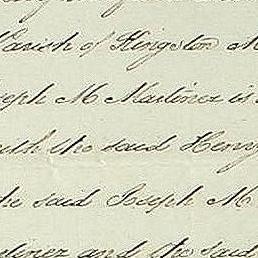 Parish of Kingston M
oseph M Martinez is
with the said Henry
he said Joseph M
tinez and the said